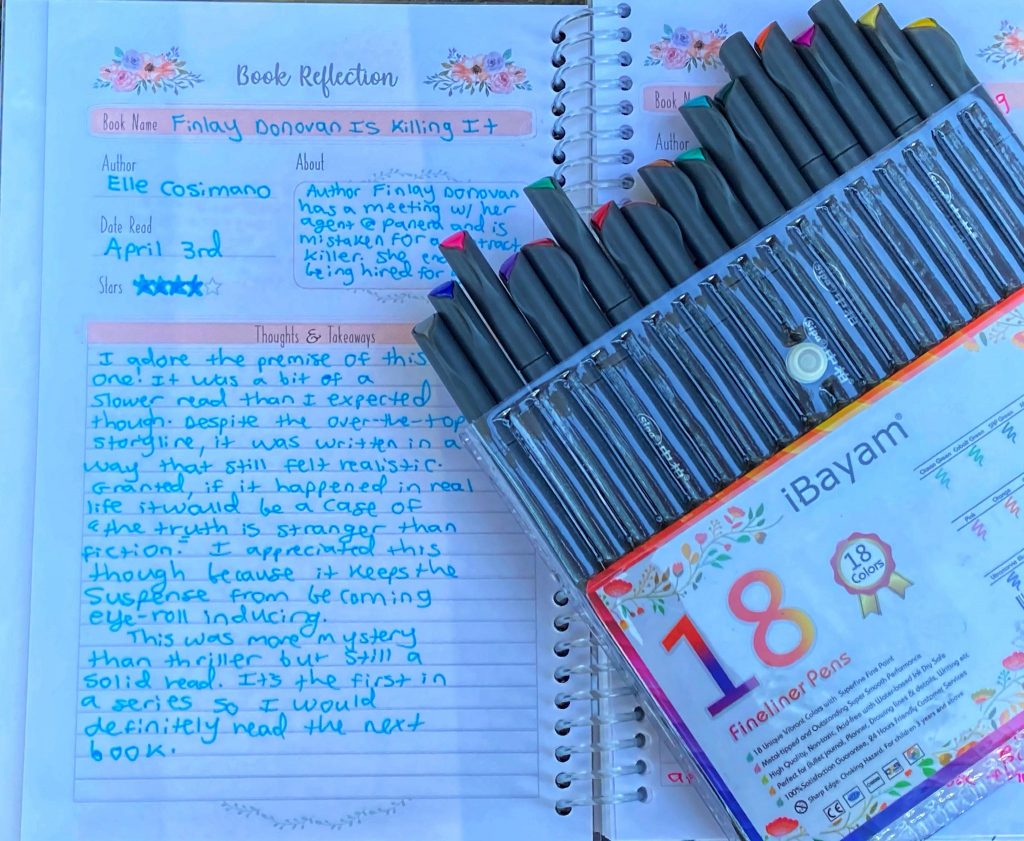 Book Reflection
Book Name Finlay Donovan Is Killing It
Author
Elle Cosimano
Date Read
April 3rd
Stars
About
Author Finlay Donovan
has a meeting w/ her
agent @ panera and is
mistaken for a
killer. She
being hired for
Thoughts & Takeaways
I adore the premise of this
one! It was a bit of a
slower read than I expected
though. Despite the over-the-top
storyline, it was written in a
way that still felt realistic.
Granted, if it happened in real
life it would be a case of
"the truth is stranger than
fiction." I appreciated this
though because it keeps the
suspense from becoming
eye-roll inducing.
This was more mystery
than thriller but still a
solid read. It's the first in
a series so I would
definitely read the next
book.
Book
Author
iBayam®
18
Colors
18
Fineliner Pens
18 Unique Vibrant Colors with Superfine Fine Point
Metal-tipped and Outstanding Super Smooth Performance
High Quality, Nontoxic, Acid-free with Water-based Ink Dry Safe
Perfect for Bullet Journal, Planner, Drawing lines & details, Writing etc
100% Satisfaction Guarantee, 24 Hours Friendly Customer Services
Sharp Edge. Choking Hazard. For children 3 years and above
CE
Cobalt Green
Sap Green
Orange
Pink